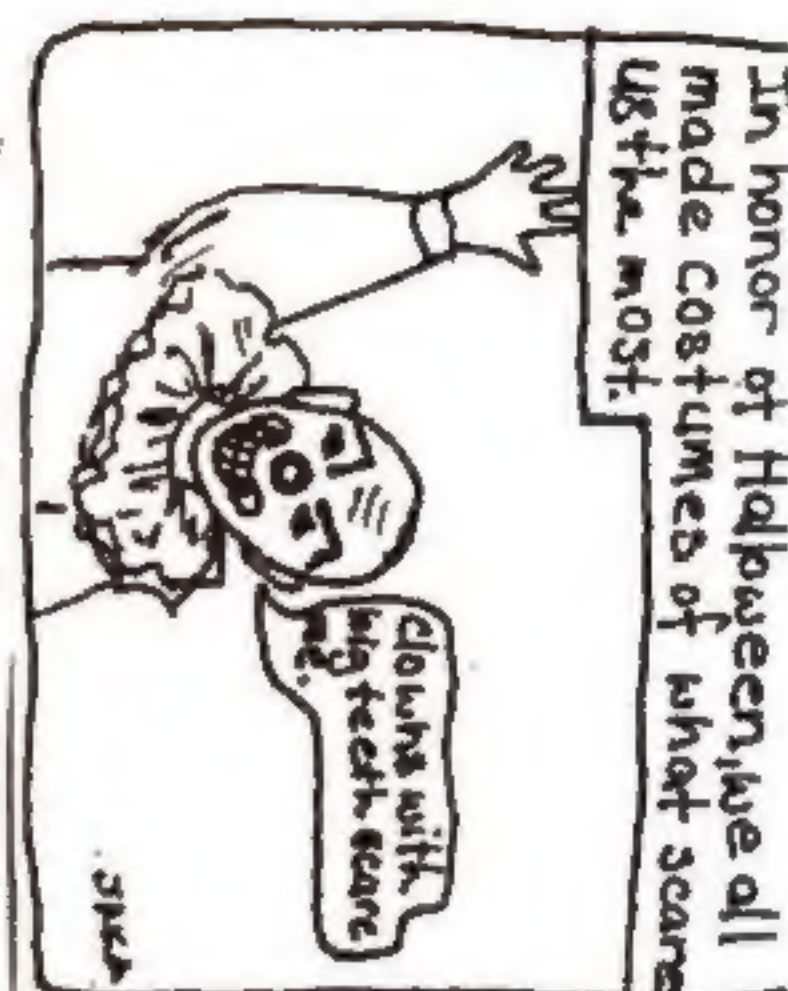 In honor of Halloween, we all
made costumes of what scare
us the most.
clowns with
big teeth scare
me.